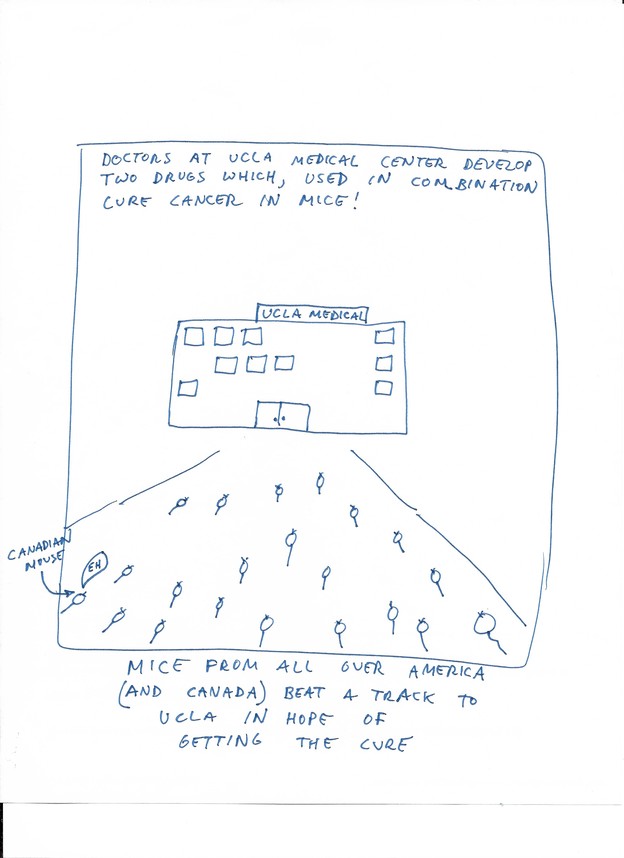 DOCTORS AT UCLA MEDICAL CENTER DEVELOP
TWO DRUGS WHICH, USED IN COMBINATION
CURE CANCER IN MICE!
UCLA MEDICAL
CANADIAN
MOUSE
EH
MICE FROM ALL OVER AMERICA
(AND CANADA) BEAT A TRACK TO
UCLA IN HOPE OF
GETTING THE CURE